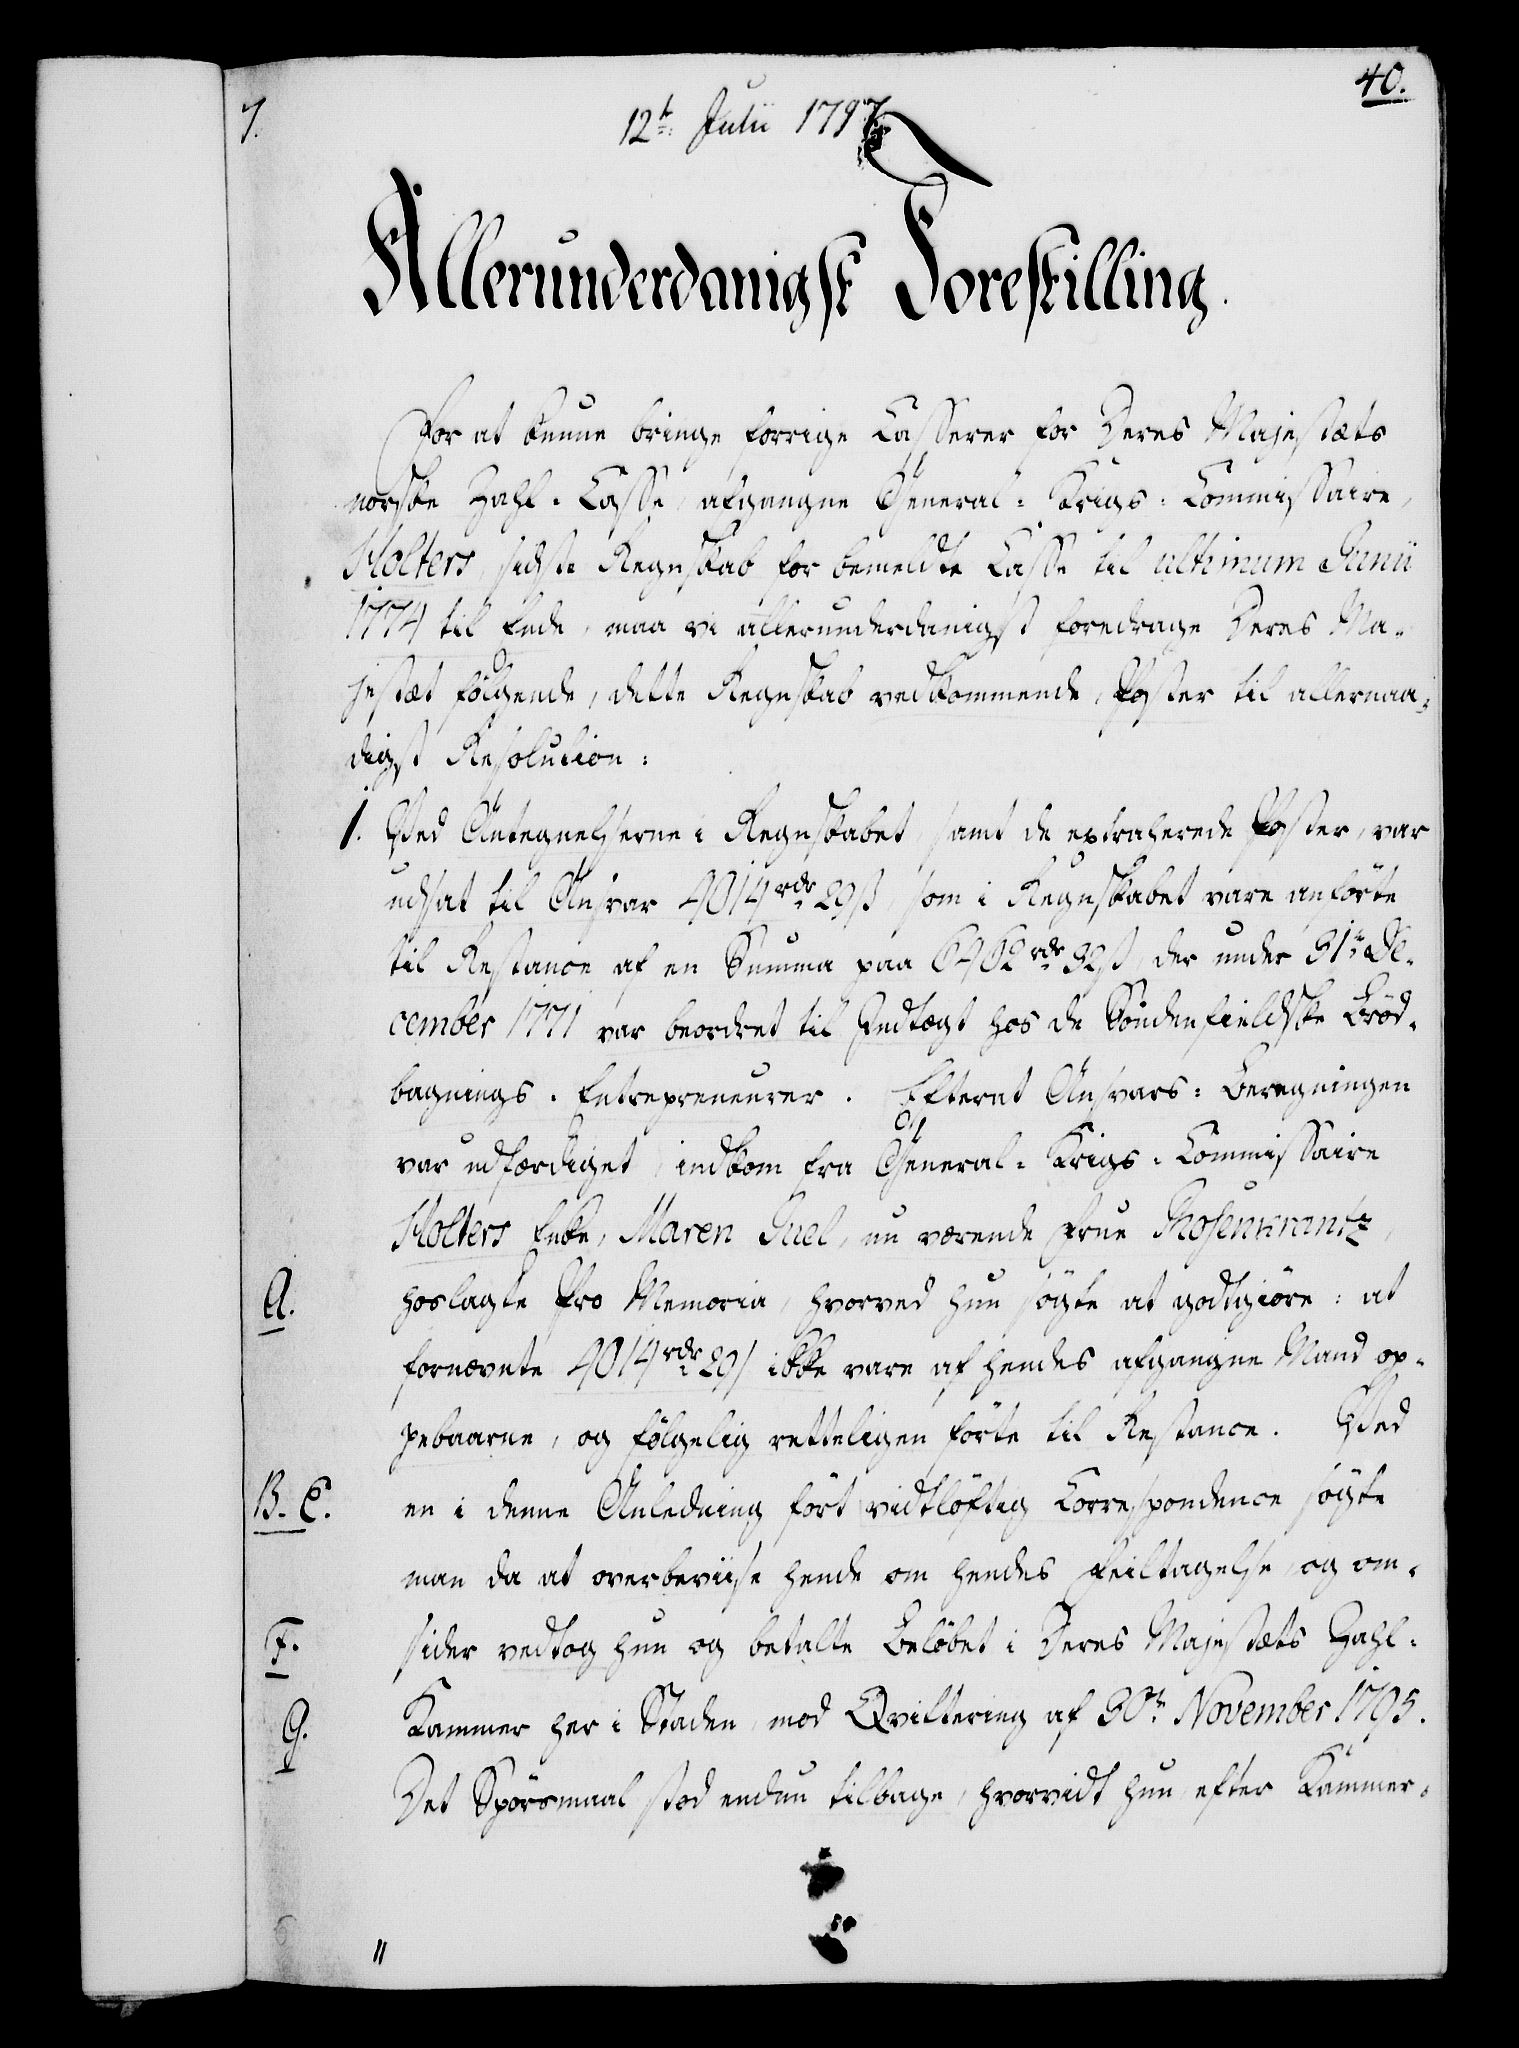 40.
7.
12t Julii 1797
Allerunderdanigst Forestilling.
For at kunne bringe forrige Casserer for Deres Majestæts
norske Zahl-Casse, afgangne General-Krigs-Commissaire,
Holters, sidste Regnskab for bemeldte Casse til ultimum Junii
1774 til Ende, maa vi allerunderdanigst foredrage Deres Ma-
jestæt følgende, dette Regnskab vedkommende, Poster til allernaa-
digst Resolution:
1. Ved Antegnelserne i Regnskabet, samt de extraherede Poster, var
udsat til Ansvar 4014 rdr 29 ß, som i Regnskabet vare anförte
til Restance af en Summa paa 6462 rdr 32 ß, der under 31te De-
cember 1771 var beordret til Indtægt hos de Søndenfieldske Bröd-
bagnings-Entrepreneurer. Efterat Ansvars-Beregningen
var udfærdiget, indkom fra General-Krigs-Commissaire
Holters Enke, Maren Juel, nu værende Frue Rosenkrantz,
A.
hoslagte Pro Memoria, hvorved hun søgte at godtgiöre: at
fornævnte 4014 rdr 29 ß ikke vare af hendes afgangne Mand op-
pebaarne, og fölgelig retteligen förte til Restance. Ved
B. C.
en i denne Anledning fört vidtlöftig Correspondence søgte
man da at overbeviise hende om hendes Feiltagelse, og om-
F.
sider vedtog hun og betalte Belöbet i Deres Majestæts Zahl-
G.
Kammer her i Staden, mod Qvittering af 30te November 1795.
Det Spörsmaal stod endnu tilbage, hvorvidt hun, efter Kammer-
"